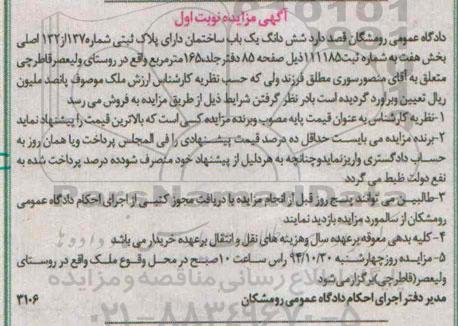 آگهی مزایده نوبت اول
دادگاه عمومی رومشگان قصد دارد شش دانگ یک باب ساختمان دارای پلاک ثبتی شماره ۱۲۷از۱۲۲ اصلی
بخش هفت به شماره ثبت۱۱۱۱۸۵ذیل صفحه ۸۵ دفترجلد،۱۶۵مترمربع واقع در روستای ولیعصرقاطرچی
متعلق به آقای منصورسوری مطلق فرزند ولی که حسب نظریه کارشناس ارزش ملک موصوف پانصد ملیون
ریال تعیین وبرآورد گردیده است بادر نظر گرفتن شرایط ذیل از طریق مزایده به فروش می رسد
۱-نظریه کارشناس به عنوان قیمت پایه مصوب وبرنده مزایده کسی است که بالاترین قیمت را پیشنهاد نماید
۲-برنده مزایده می بایست حداقل ده درصد قیمت پیشنهادی را فی المجلس پرداخت ویا همان روز به
حساب دادگستری واریزنمایدوچنانچه به هردلیل از پیشنهاد خود منصرف شودده درصد پرداخت شده به
نفع دولت ظبط می گردد
۳-طالبین می توانند پنج روز قبل از انجام مزایده با دریافت مجوز کتبی از اجرای احکام دادگاه عمومی
رومشکان از سالمورد مزایده بازدید نمایند
۴-کلیه بدهی معوقه برعهده سال وهزینه های نقل و انتقال برعهده خریدار می باشد
۵- مزایده روزچهارشنبه ۹۴/۱۰/۳۰ راس ساعت ۱۰صبح در محل وقوع ملک واقع در روستای
ولیعصر(قاطرچی)برگزار می شود
مدیر دفتر اجرای احکام دادگاه عمومی رومشکان
۳۱۰۶
پایگاه اطلاع رسانی مناقصه و مزایده
۰۲۱-۸۸۳۴۹۶۷۰-۵